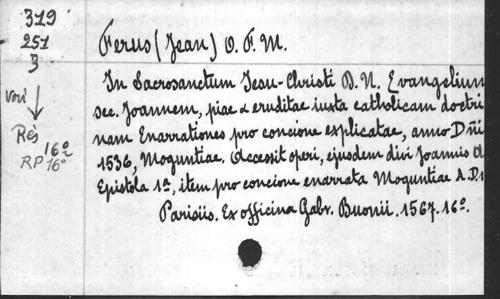 319
251
3
voir
Rés
16º
RP 16º
Ferus (Jean) O. F. M.
In Sacrosanctum Jesu-Christi D. N. Evangelium
sec. Joannem, piae & eruditae iuxta catholicam doctri
nam Enarrationes pro concione explicatae, anno Dñi
1536, Moguntiae. Accessit operi, ejusdem divi Joannis
Epistola 1ª, item pro concione enarrata Moguntiae A.D.
Parisiis. Ex officina Gabr. Buonii. 1567. 16º.